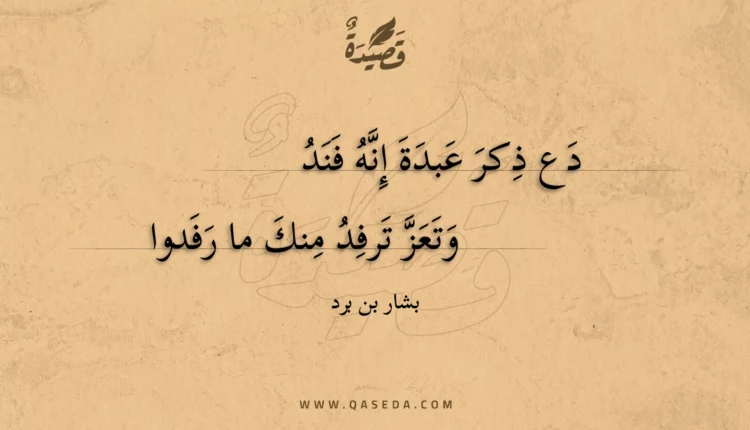 قَصِيدَةٌ
دَع ذِكرَ عَبدَةَ إِنَّهُ فَنَدُ
وَتَعَزَّ تَرفِدُ مِنكَ ما رَفَدوا
بشار بن برد
WWW.QASEDA.COM